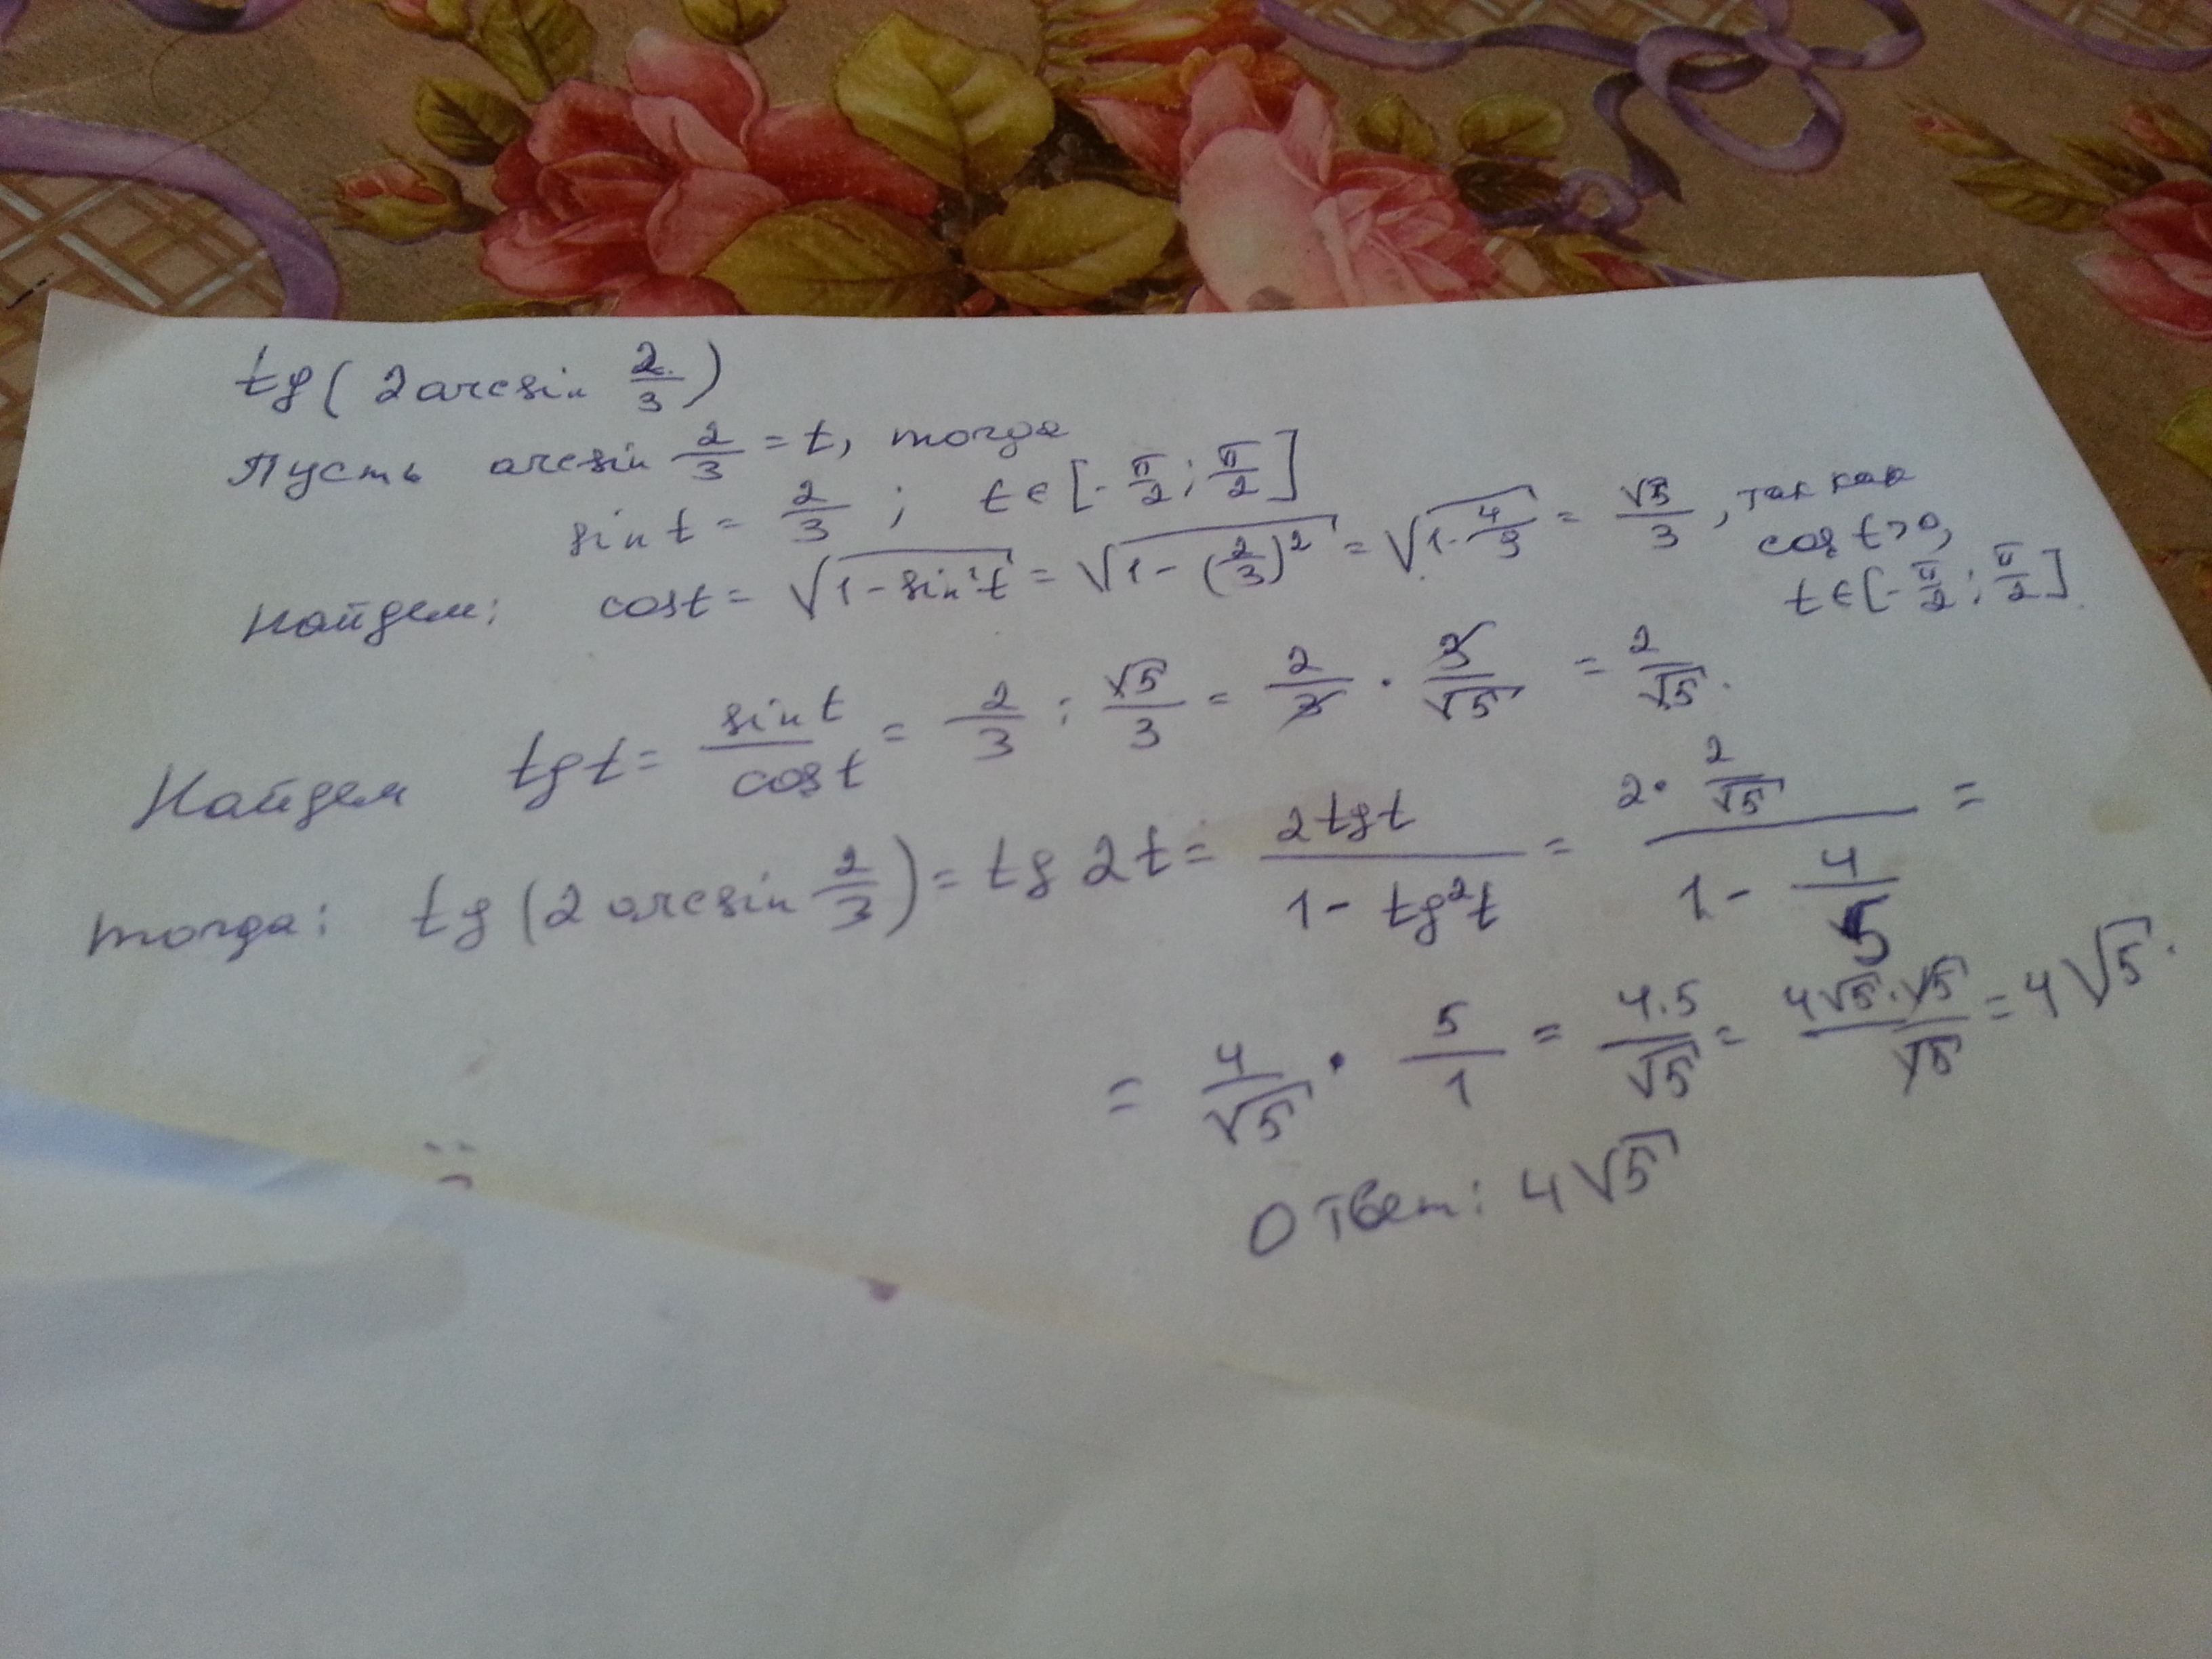 tg(2arcsin 2/3)
Пусть arcsin 2/3 = t, тогда
sin t = 2/3; t ∈ [-π/2; π/2]
Найдем: cos t = √(1 - sin²t) = √(1 - (2/3)²) = √(1 - 4/9) = √5/3, так как cos t > 0, t ∈ [-π/2; π/2]
Найдем tg t = sin t/cos t = 2/3 : √5/3 = 2/3 · 3/√5 = 2/√5.
тогда: tg(2arcsin 2/3) = tg 2t = 2tg t/(1 - tg²t) = (2 · 2/√5)/(1 - 4/5) =
= 4/√5 · 5/1 = 4·5/√5 = 4√5·√5/√5 = 4√5.
Ответ: 4√5